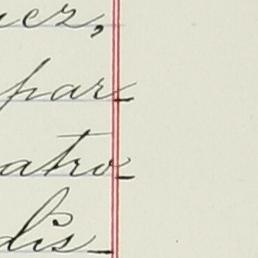 uez,
par-
atro-
dis-